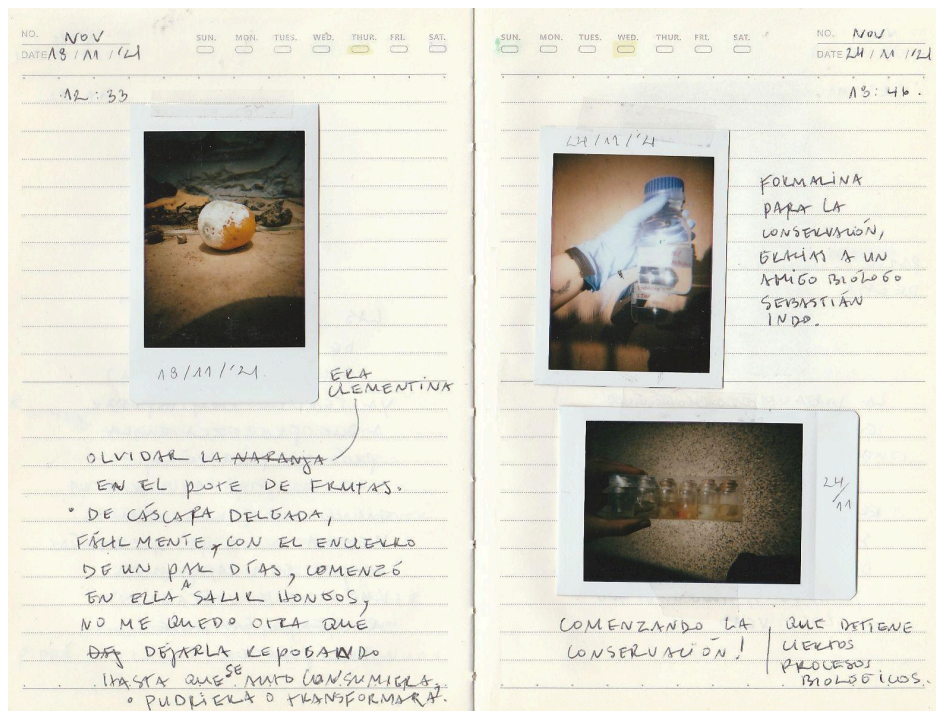 NO. NOV
SUN. MON. TUES. WED. THUR. FRI. SAT.
DATE 18 / 11 / '21
12:33
18/11/'21.
ERA
CLEMENTINA
OLVIDAR LA NARANJA
EN EL POTE DE FRUTAS.
• DE CÁSCARA DELGADA,
FÁCILMENTE, CON EL ENCIERRO
DE UN PAR DÍAS, COMENZÓ
EN ELLA A SALIR HONGOS,
NO ME QUEDO OTRA QUE
DEJARLA REPOSANDO
HASTA QUE SE AUTO CONSUMIERA,
• PUDRIERA O TRANSFORMARA
SUN. MON. TUES. WED. THUR. FRI. SAT.
NO. NOV
DATE 24 / 11 / '21
13:46.
24/11/'21
FORMALINA
PARA LA
CONSERVACIÓN,
GRACIAS A UN
AMIGO BIÓLOGO
SEBASTIÁN
INDO.
24/
11
COMENZANDO LA
CONSERVACIÓN!
QUE DETIENE
CIERTOS
PROCESOS
BIOLÓGICOS.